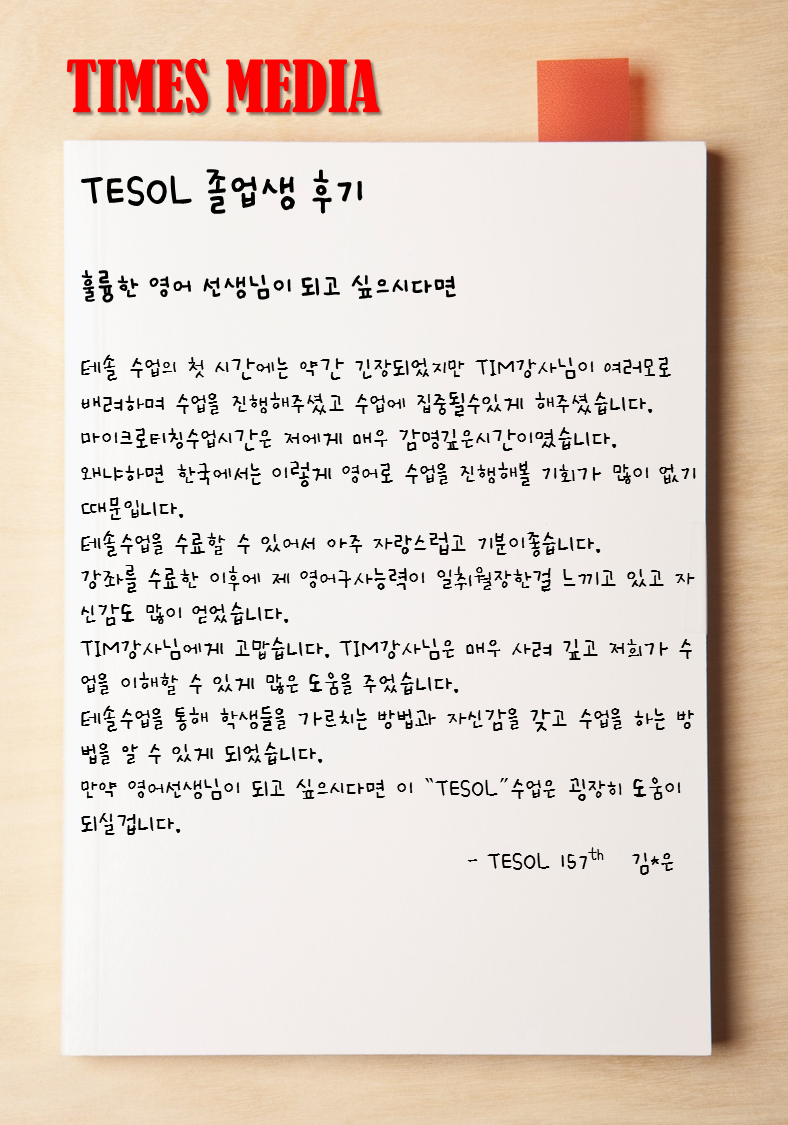 TIMES MEDIA
TESOL 졸업생 후기
훌륭한 영어 선생님이 되고 싶으시다면
테솔 수업의 첫 시간에는 약간 긴장되었지만 TIM강사님이 여러모로
배려하며 수업을 진행해주셨고 수업에 집중될수있게 해주셨습니다.
마이크로티칭수업시간은 저에게 매우 감명깊은시간이였습니다.
왜냐하면 한국에서는 이렇게 영어로 수업을 진행해볼 기회가 많이 없기
때문입니다.
테솔수업을 수료할 수 있어서 아주 자랑스럽고 기분이좋습니다.
강좌를 수료한 이후에 제 영어구사능력이 일취월장한걸 느끼고 있고 자
신감도 많이 얻었습니다.
TIM강사님에게 고맙습니다. TIM강사님은 매우 사려 깊고 저희가 수
업을 이해할 수 있게 많은 도움을 주었습니다.
테솔수업을 통해 학생들을 가르치는 방법과 자신감을 갖고 수업을 하는 방
법을 알 수 있게 되었습니다.
만약 영어선생님이 되고 싶으시다면 이 “TESOL”수업은 굉장히 도움이
되실겁니다.
- TESOL 157th 김*은